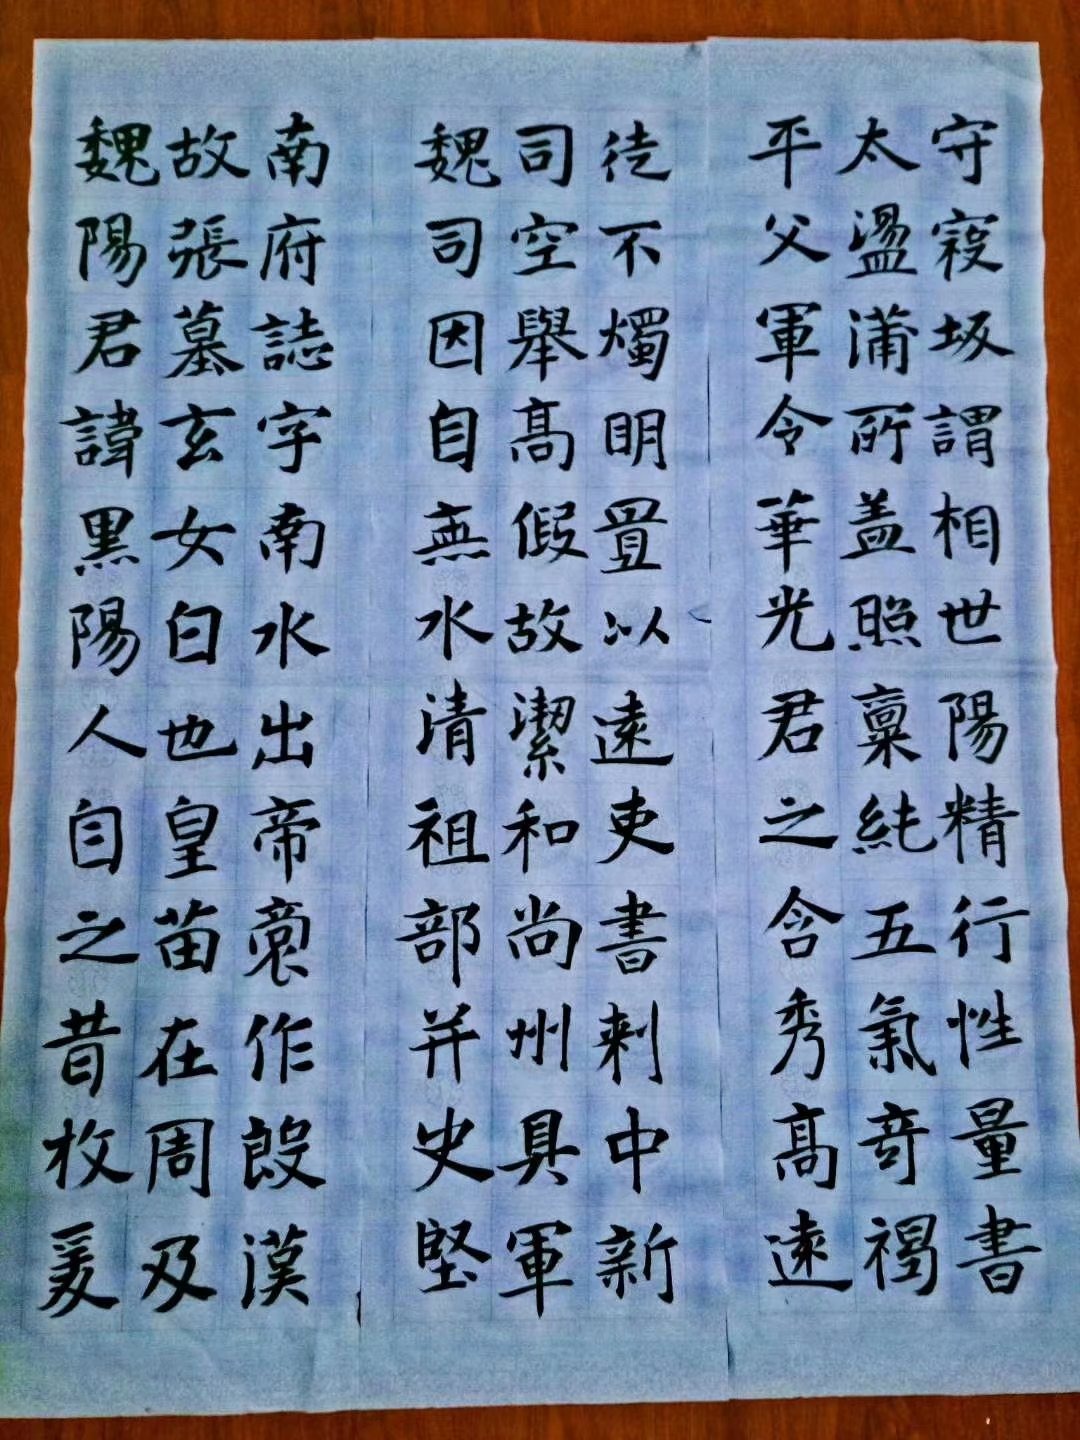 魏故南
陽張府
君墓誌
諱玄字
黑女南
陽白水
人也出
自皇帝
之苗裔
昔在作
牧周殷
爰及漢
魏司徒
司空不
因舉燭
自高明
無假置
水故以
清潔遠
祖和吏
部尚書
并州刺
史具中
堅軍新
平太守
父盪寇
軍蒲坂
令所謂
華盖相
光照世
君稟陽
之純精
含五行
秀氣性
高奇量
遠書